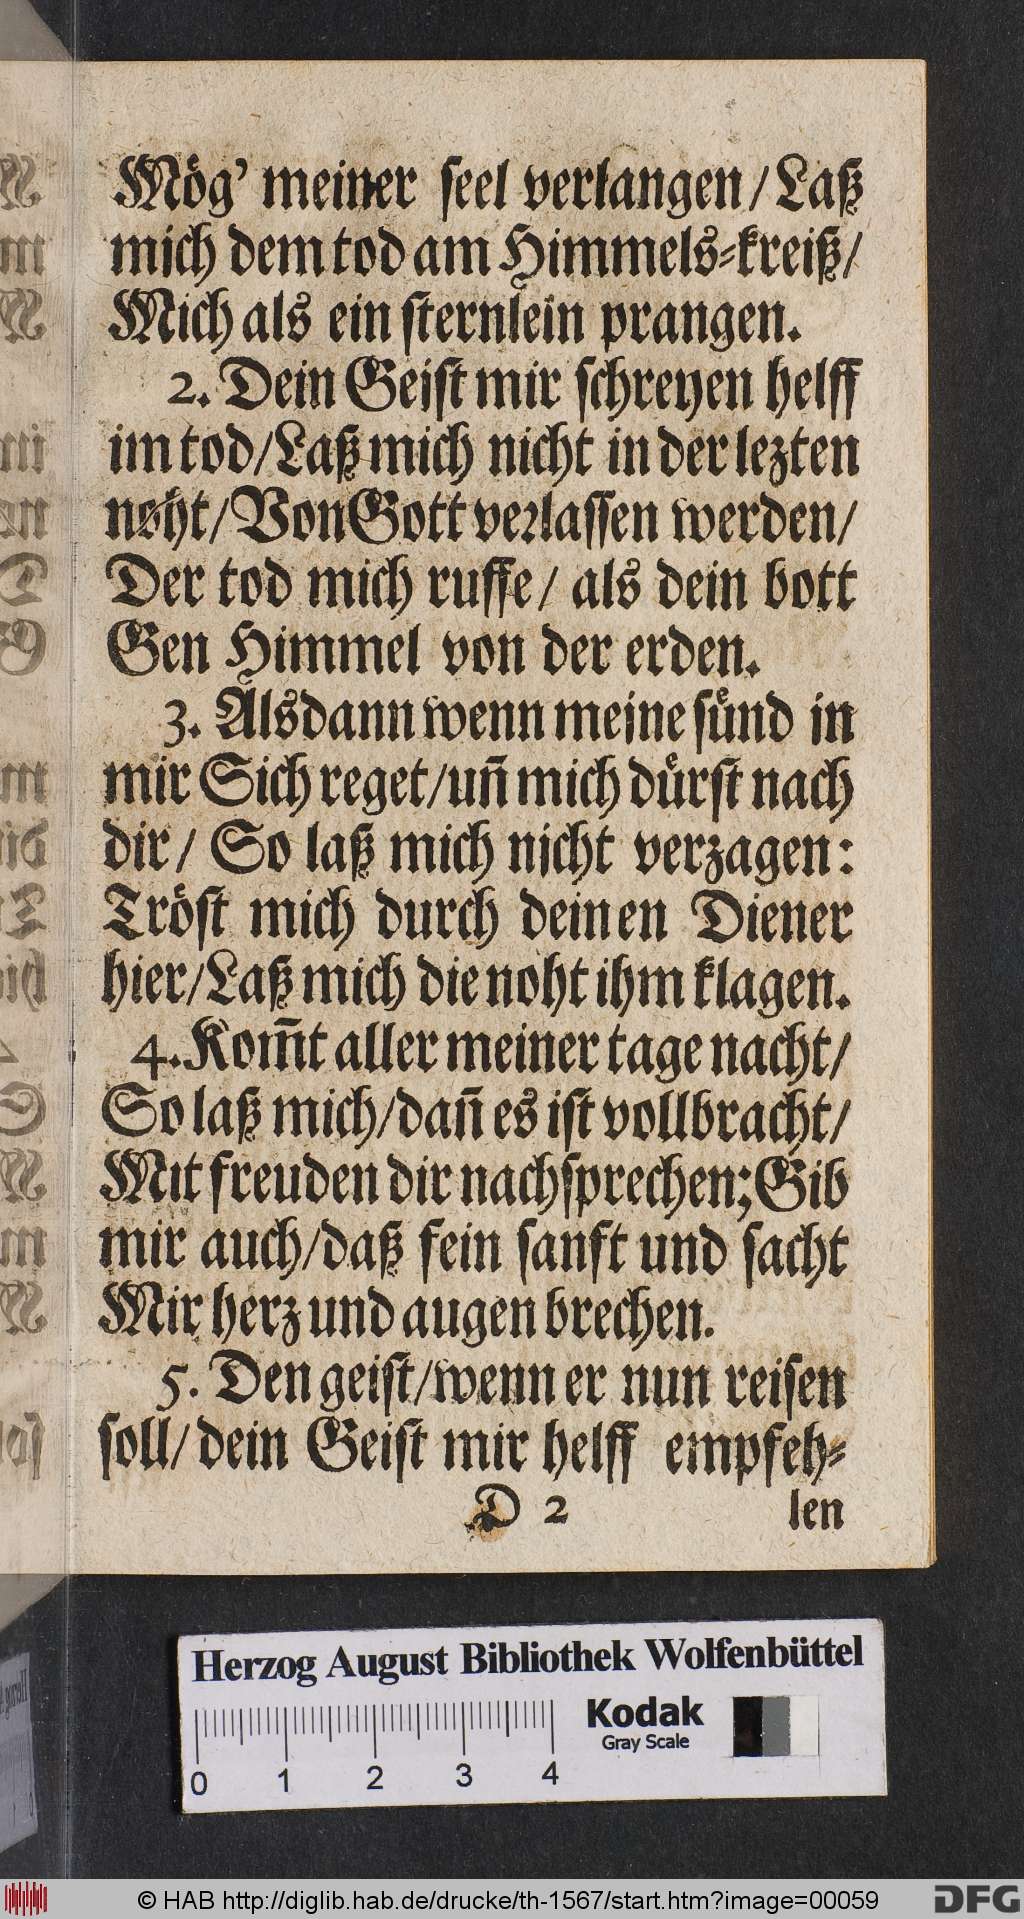 Mög’ meiner seel verlangen / Laß
mich dem tod am Himmels=kreiß /
Mich als ein sternlein prangen.
2. Dein Geist mir schreyen helff
im tod / Laß mich nicht in der lezten
nöht / Von Gott verlassen werden /
Der tod mich ruffe / als dein bott
Gen Himmel von der erden.
3. Alsdann wenn meine sünd in
mir Sich reget / uñ mich dürst nach
dir / So laß mich nicht verzagen:
Tröst mich durch deinen Diener
hier / Laß mich die noht ihm klagen.
4. Kom̃t aller meiner tage nacht /
So laß mich / dañ es ist vollbracht /
Mit freuden dir nachsprechen; Gib
mir auch / daß fein sanft und sacht
Mir herz und augen brechen.
5. Den geist / wenn er nun reisen
soll / dein Geist mir helff empfeh=
D 2 len
Herzog August Bibliothek Wolfenbüttel
Kodak
Gray Scale
0 1 2 3 4
© HAB http://diglib.hab.de/drucke/th-1567/start.htm?image=00059
DFG